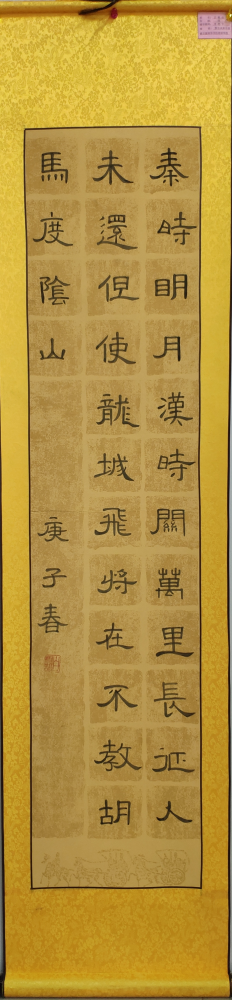 秦時明月漢時關萬里長征人
未還但使龍城飛將在不教胡
馬度陰山
庚子春